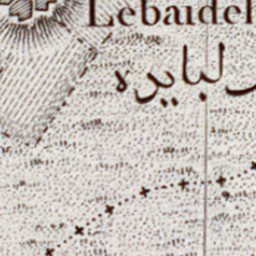 Lebaideh
لبایده